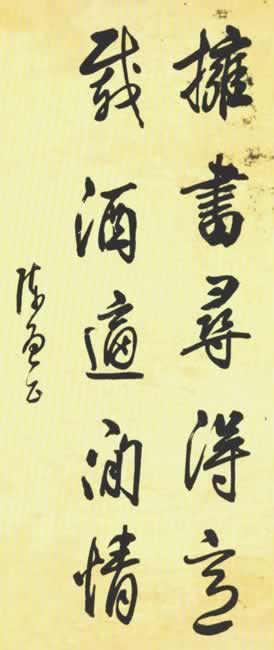 擁書尋得意
載酒適閒情
陳